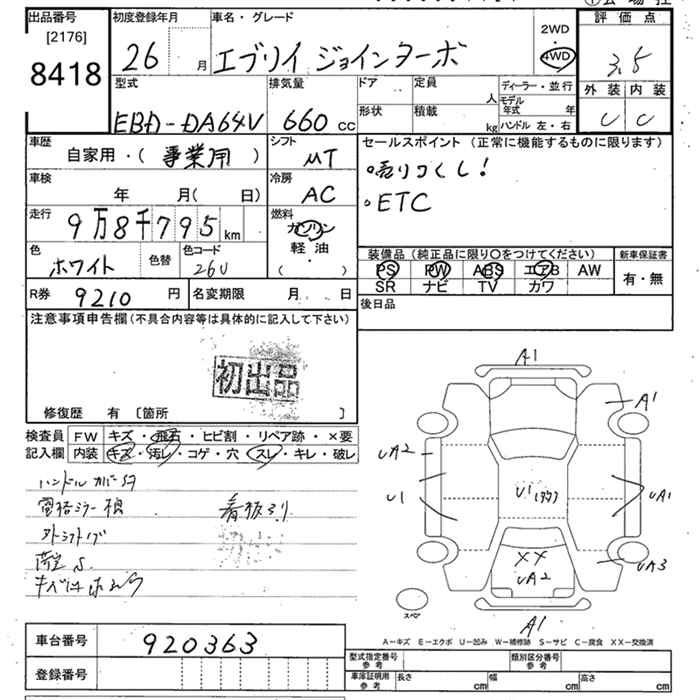 出品番号
[2176]
8418
初度登録年月
26 月
車名・グレード
エブリイ ジョインターボ
2WD
・
4WD
評価点
3.5
外装 内装
型式
EBD-DA64V
排気量
660 cc
ドア
形状
定員
人
積載
kg
ディーラー・並行
モデル年式 年
ハンドル 左・右
車歴
自家用・( 事業用 )
シフト
MT
車検
年 月( 日)
冷房
AC
走行
9万8千795 km
燃料
ガソリン
・
軽油
・
( )
色
ホワイト
色替
色コード
26U
R券 9210 円
名変期限 月 日
セールスポイント (正常に機能するものに限ります)
。売りつくし!
。ETC
装備品 (純正品に限り〇をつけてください)
PS PW ABS エアB AW
SR ナビ TV カワ
新車保証書
有・無
後日品
注意事項申告欄 (不具合内容等は具体的に記入して下さい)
初出品
修復歴 有 〔箇所 〕
検査員
記入欄
FW キズ・飛石・ヒビ割・リペア跡・×要
内装 キズ・汚レ・コゲ・穴・スレ・キレ・破レ
A1
A1
UA2
U1
U1
UA1
XX
UA2
UA3
スペア
A1
A－キズ E－エクボ U－凹み W－補修跡 S－サビ C－腐食 XX－交換済
車台番号 920363
登録番号
型式指定番号
参考
類別区分番号
参考
車庫証明用
参考
長さ cm
幅 cm
高さ cm